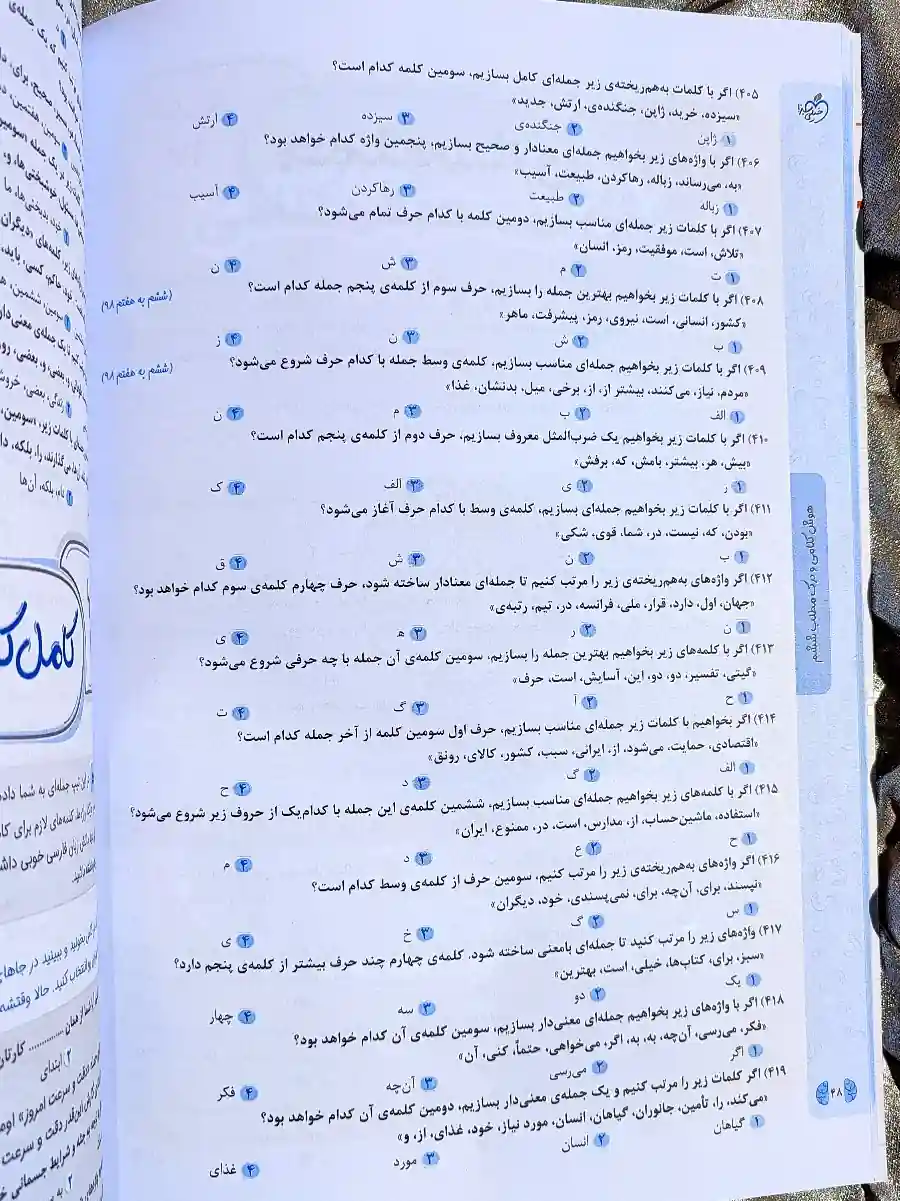 ۴۰۵) اگر با کلمات به‌هم‌ریخته‌ی زیر جمله‌ای کامل بسازیم، سومین کلمه کدام است؟
«سیزده، خرید، ژاپن، جنگنده‌ی، ارتش، جدید»
۱ ژاپن ۲ جنگنده‌ی ۳ سیزده ۴ ارتش
۴۰۶) اگر با واژه‌های زیر بخواهیم جمله‌ای معنادار و صحیح بسازیم، پنجمین واژه کدام خواهد بود؟
«به، می‌رساند، زباله، رهاکردن، طبیعت، آسیب»
۱ زباله ۲ طبیعت ۳ رهاکردن ۴ آسیب
۴۰۷) اگر با کلمات زیر جمله‌ای مناسب بسازیم، دومین کلمه با کدام حرف تمام می‌شود؟
«تلاش، است، موفقیت، رمز، انسان»
۱ ت ۲ م ۳ ش ۴ ن
۴۰۸) اگر با کلمات زیر بخواهیم بهترین جمله را بسازیم، حرف سوم از کلمه‌ی پنجم جمله کدام است؟ (ششم به هفتم ۹۸)
«کشور، انسانی، است، نیروی، رمز، پیشرفت، ماهر»
۱ ب ۲ ش ۳ ن ۴ ز
۴۰۹) اگر با کلمات زیر بخواهیم جمله‌ای مناسب بسازیم، کلمه‌ی وسط جمله با کدام حرف شروع می‌شود؟ (ششم به هفتم ۹۸)
«مردم، نیاز، می‌کنند، بیشتر از، از، برخی، میل، بدنشان، غذا»
۱ الف ۲ ب ۳ م ۴ ن
۴۱۰) اگر با کلمات زیر بخواهیم یک ضرب‌المثل معروف بسازیم، حرف دوم از کلمه‌ی پنجم کدام است؟
«بیش، هر، بیشتر، بامش، که، برفش»
۱ ر ۲ ی ۳ الف ۴ ک
۴۱۱) اگر با کلمات زیر بخواهیم جمله‌ای بسازیم، کلمه‌ی وسط با کدام حرف آغاز می‌شود؟
«بودن، که، نیست، در، شما، قوی، شکی»
۱ ب ۲ ن ۳ ش ۴ ق
۴۱۲) اگر واژه‌های به‌هم‌ریخته‌ی زیر را مرتب کنیم تا جمله‌ای معنادار ساخته شود، حرف چهارم کلمه‌ی سوم کدام خواهد بود؟
«جهان، اول، دارد، قرار، ملی، فرانسه، در، تیم، رتبه‌ی»
۱ ن ۲ ر ۳ ه ۴ ی
۴۱۳) اگر با کلمه‌های زیر بخواهیم بهترین جمله را بسازیم، سومین کلمه‌ی آن جمله با چه حرفی شروع می‌شود؟
«گیتی، تفسیر، دو، دو، این، آسایش، است، حرف»
۱ ح ۲ آ ۳ گ ۴ ت
۴۱۴) اگر بخواهیم با کلمات زیر جمله‌ای مناسب بسازیم، حرف اول سومین کلمه از آخر جمله کدام است؟
«اقتصادی، حمایت، می‌شود، از، ایرانی، سبب، کشور، کالای، رونق»
۱ الف ۲ گ ۳ د ۴ ح
۴۱۵) اگر با کلمه‌های زیر بخواهیم جمله‌ای مناسب بسازیم، ششمین کلمه‌ی این جمله با کدام‌یک از حروف زیر شروع می‌شود؟
«استفاده، ماشین‌حساب، از، مدارس، است، در، ممنوع، ایران»
۱ ح ۲ ع ۳ د ۴ م
۴۱۶) اگر واژه‌های به‌هم‌ریخته‌ی زیر را مرتب کنیم، سومین حرف از کلمه‌ی وسط کدام است؟
«نپسند، برای، آن‌چه، برای، نمی‌پسندی، خود، دیگران»
۱ س ۲ گ ۳ خ ۴ ی
۴۱۷) واژه‌های زیر را مرتب کنید تا جمله‌ای بامعنی ساخته شود. کلمه‌ی چهارم چند حرف بیشتر از کلمه‌ی پنجم دارد؟
«سبز، برای، کتاب‌ها، خیلی، است، بهترین»
۱ یک ۲ دو ۳ سه ۴ چهار
۴۱۸) اگر با واژه‌های زیر بخواهیم جمله‌ای معنی‌دار بسازیم، سومین کلمه‌ی آن کدام خواهد بود؟
«فکر، می‌رسی، آن‌چه، به، به، اگر، می‌خواهی، حتماً، کنی، آن»
۱ اگر ۲ می‌رسی ۳ آن‌چه ۴ فکر
۴۱۹) اگر کلمات زیر را مرتب کنیم و یک جمله‌ی معنی‌دار بسازیم، دومین کلمه‌ی آن کدام خواهد بود؟
«می‌کند، را، تأمین، جانوران، گیاهان، انسان، مورد نیاز، خود، غذای، از، و»
۱ گیاهان ۲ انسان ۳ مورد ۴ غذای
هوش کلامی و درک مطلب ششم
۴۸